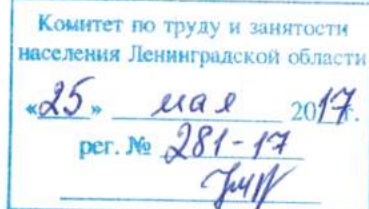 Комитет по труду и занятости
населения Ленинградской области
«25» мая 2017г.
рег. № 281-17